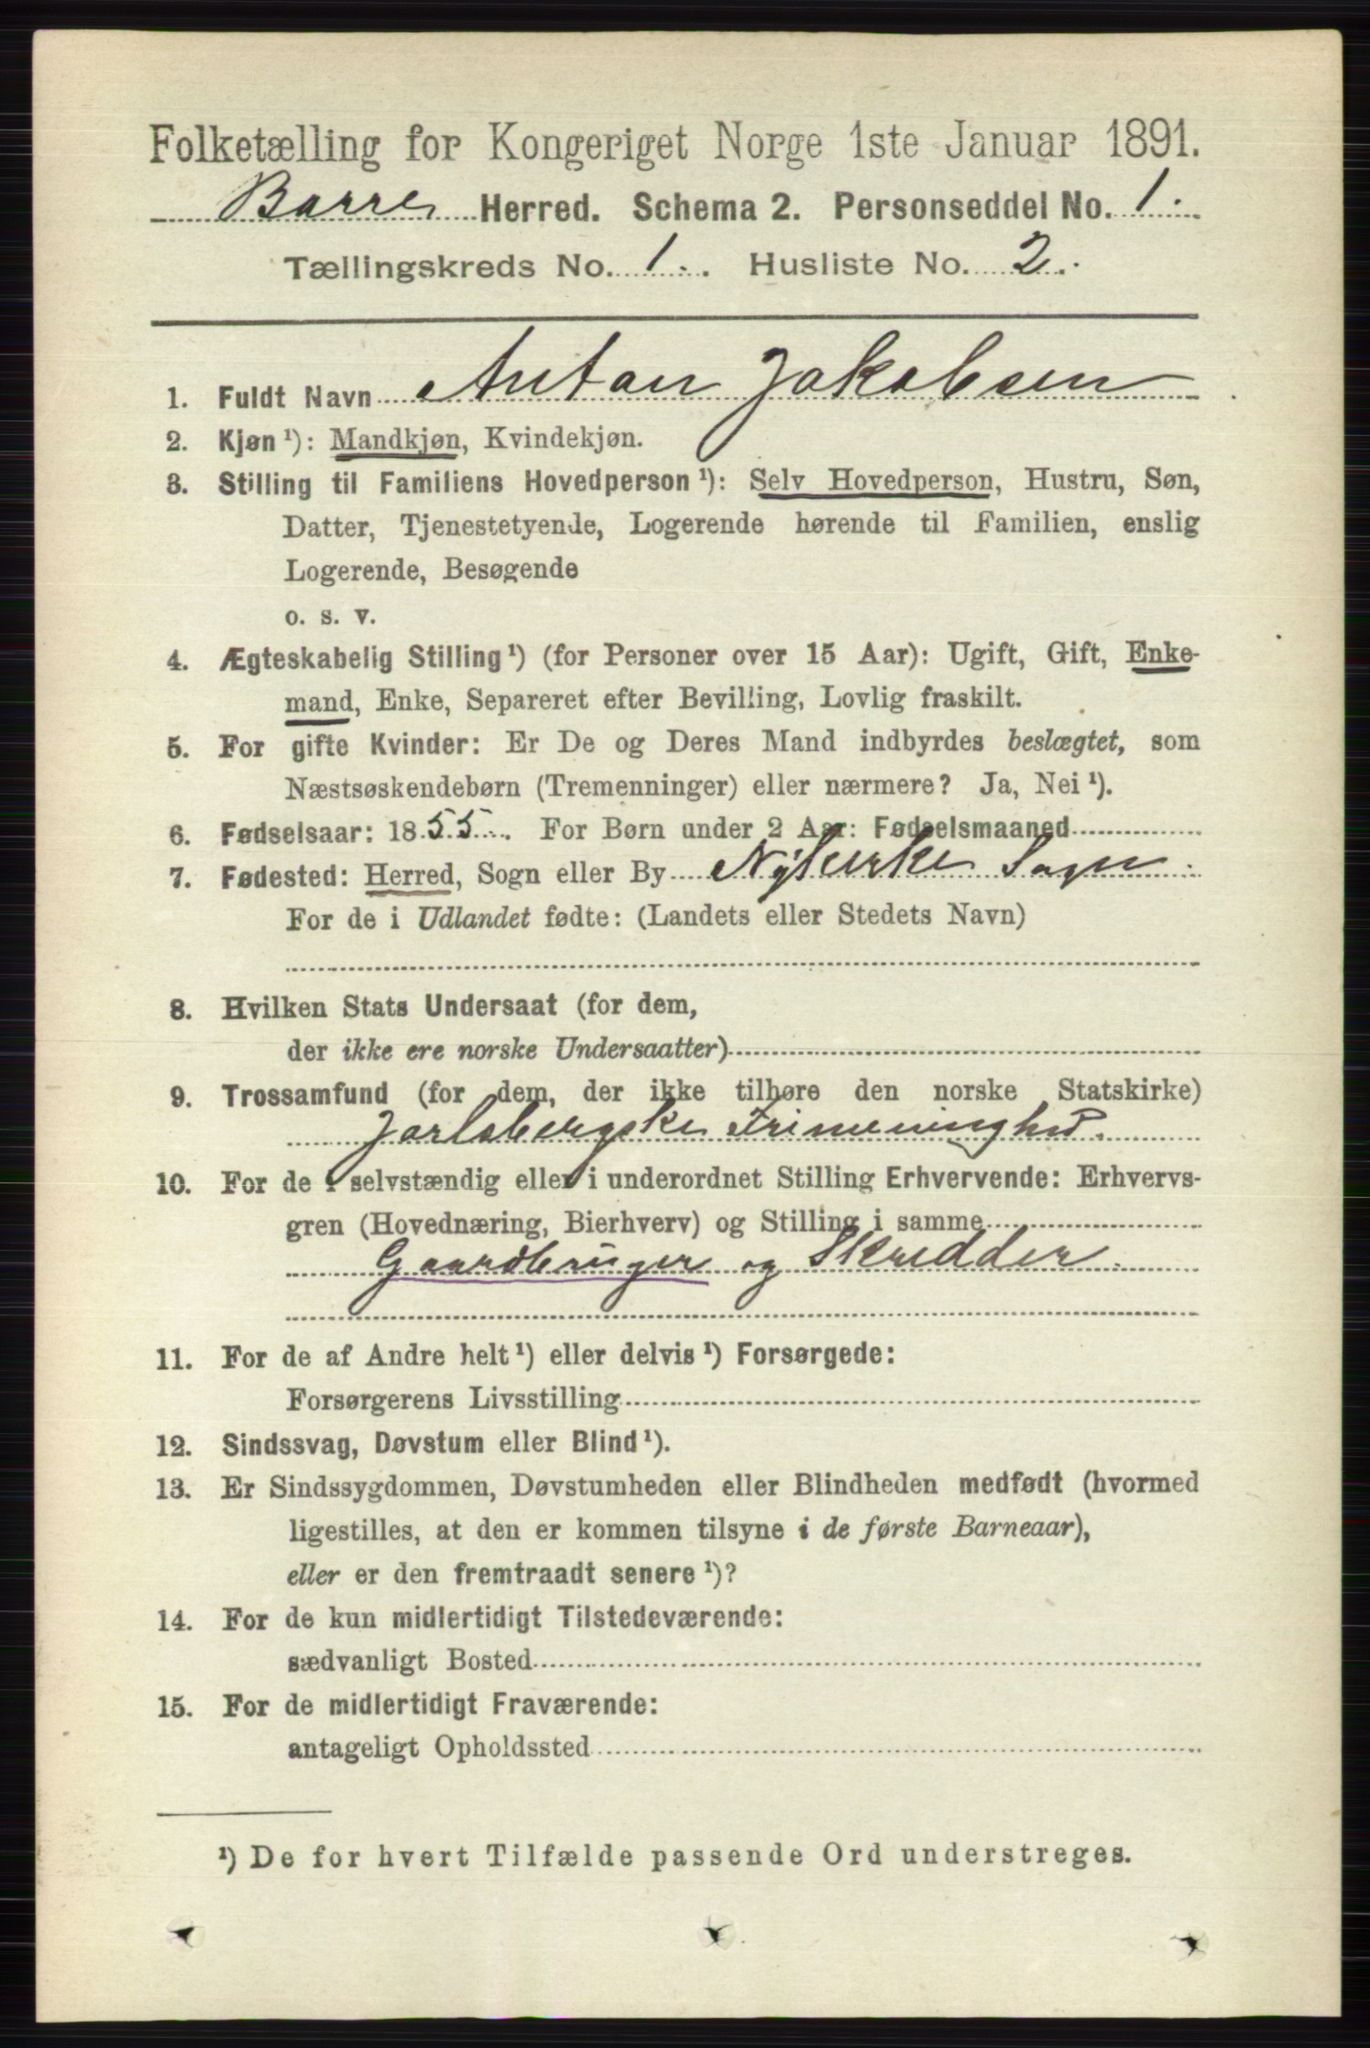 Folketælling for Kongeriget Norge 1ste Januar 1891.
Borre Herred. Schema 2. Personseddel No. 1.
Tællingskreds No. 1. Husliste No. 2.
1. Fuldt Navn Anton Jakobsen
2. Kjøn ¹): Mandkjøn, Kvindekjøn.
3. Stilling til Familiens Hovedperson ¹): Selv Hovedperson, Hustru, Søn,
Datter, Tjenestetyende, Logerende hørende til Familien, enslig
Logerende, Besøgende
o. s. v.
4. Ægteskabelig Stilling ¹) (for Personer over 15 Aar): Ugift, Gift, Enke-
mand, Enke, Separeret efter Bevilling, Lovlig fraskilt.
5. For gifte Kvinder: Er De og Deres Mand indbyrdes beslægtet, som
Næstsøskendebørn (Tremenninger) eller nærmere? Ja, Nei ¹).
6. Fødselsaar: 1855. For Børn under 2 Aar: Fødselsmaaned
7. Fødested: Herred, Sogn eller By Nykirke Sogn.
For de i Udlandet fødte: (Landets eller Stedets Navn)
8. Hvilken Stats Undersaat (for dem,
der ikke ere norske Undersaatter)
9. Trossamfund (for dem, der ikke tilhøre den norske Statskirke)
Jarlsbergske Frimeninghed.
10. For de i selvstændig eller i underordnet Stilling Erhvervende: Erhvervs-
gren (Hovednæring, Bierhverv) og Stilling i samme
Gaardbruger og Skredder.
11. For de af Andre helt ¹) eller delvis ¹) Forsørgede:
Forsørgerens Livsstilling
12. Sindssvag, Døvstum eller Blind ¹).
13. Er Sindssygdommen, Døvstumheden eller Blindheden medfødt (hvormed
ligestilles, at den er kommen tilsyne i de første Barneaar),
eller er den fremtraadt senere ¹)?
14. For de kun midlertidigt Tilstedeværende:
sædvanligt Bosted
15. For de midlertidigt Fraværende:
antageligt Opholdssted
¹) De for hvert Tilfælde passende Ord understreges.